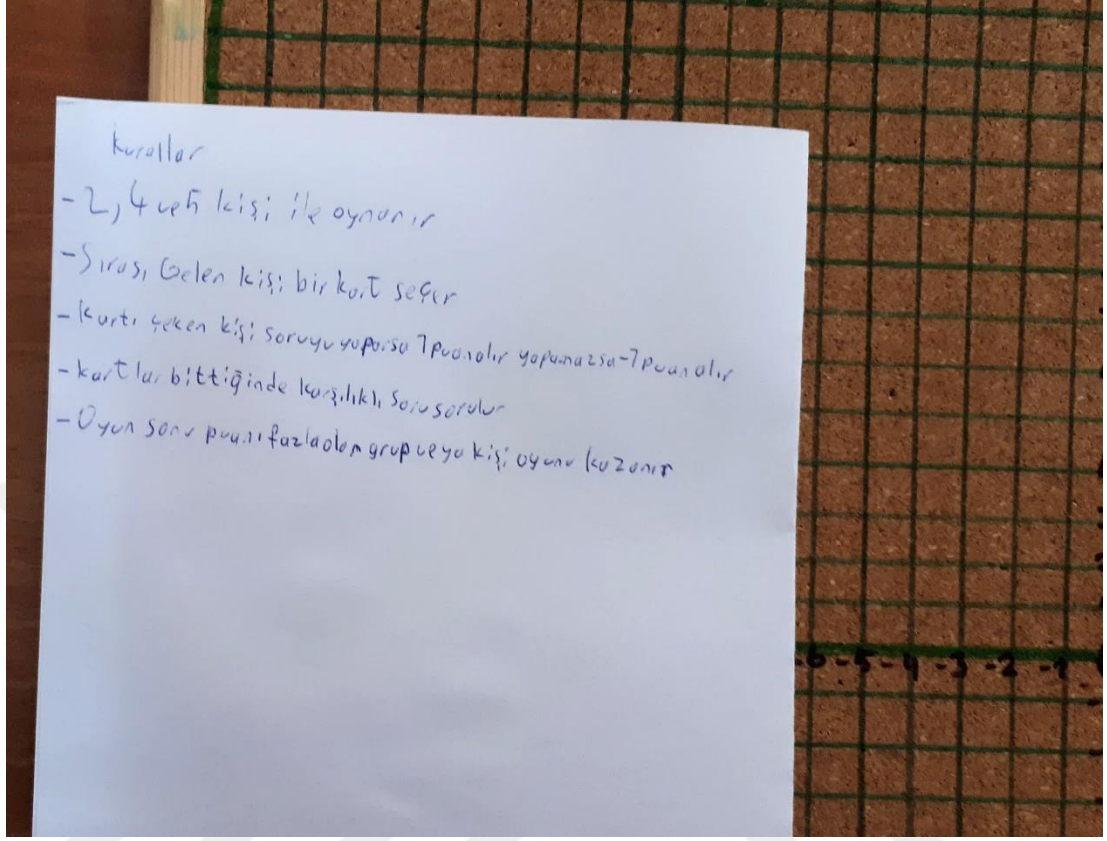 kurallar
- 2, 4 ve 6 kişi ile oynanır
- Sırası Gelen kişi bir kart seçer
- Kartı çeken kişi soruyu yaparsa 1 puan alır yapamazsa -1 puan alır
- kartlar bittiğinde karşılıklı soru sorulur
- Oyun sonu puanı fazla olan grup veya kişi oyunu kazanır
-6 -5 -4 -3 -2 -1